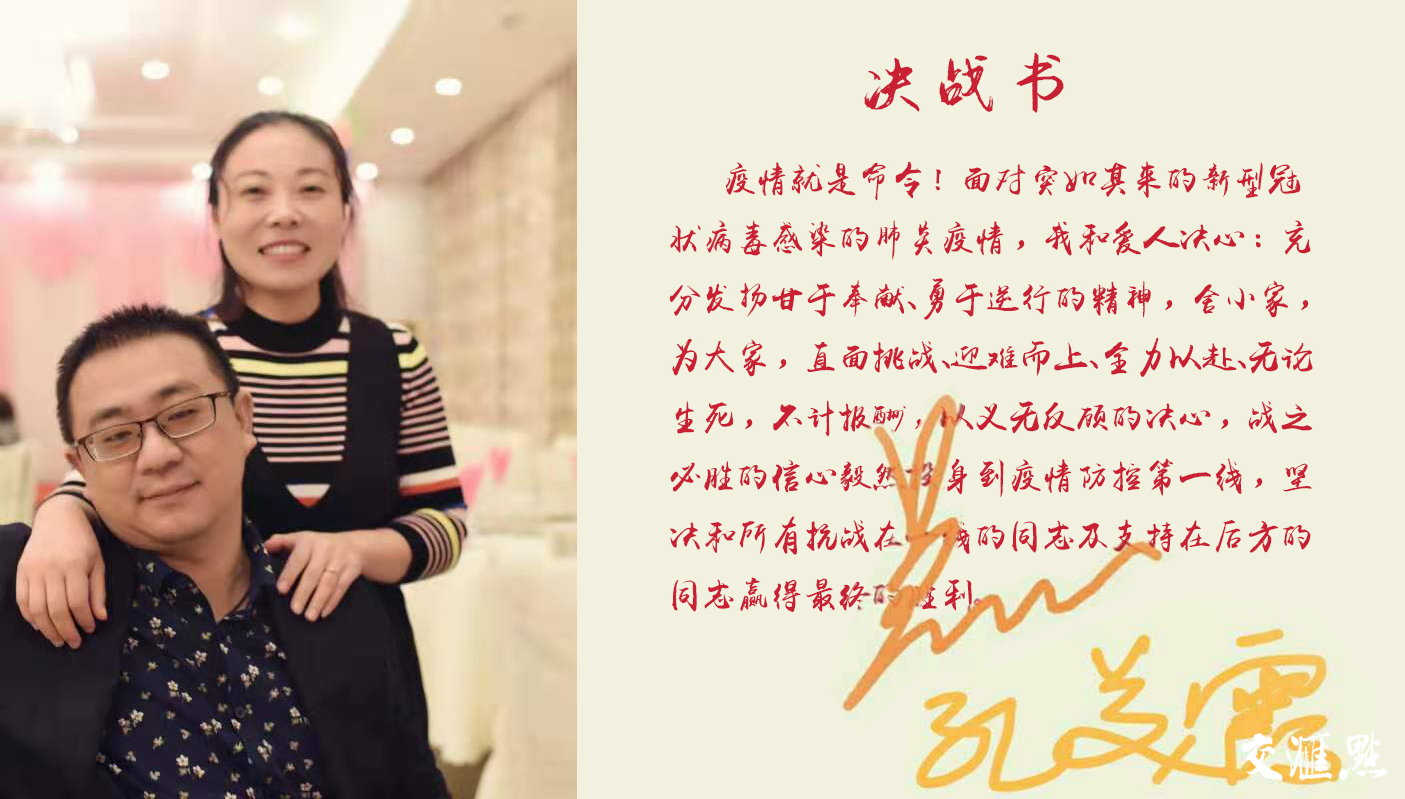 决战书
疫情就是命令！面对突如其来的新型冠
状病毒感染的肺炎疫情，我和爱人决心：充
分发扬甘于奉献、勇于逆行的精神，舍小家，
为大家，直面挑战、迎难而上、全力以赴、无论
生死，不计报酬，以义无反顾的决心，战之
必胜的信心毅然投身到疫情防控第一线，坚
决和所有抗战在一线的同志及支持在后方的
同志赢得最终的胜利。
孔美霞
交汇點